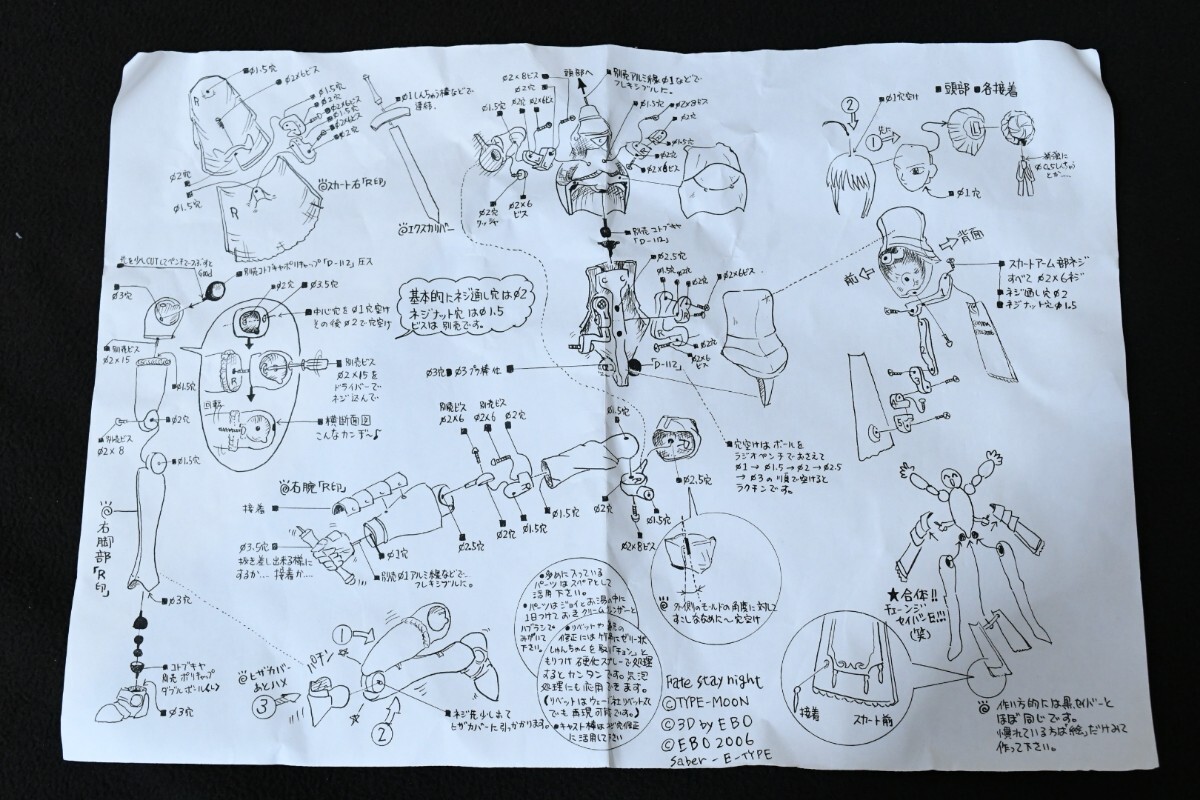 ■ø1.5穴
■ø2×6ビス
■ø1.5穴
■ø2穴
■ø2×6ビス
■ø1.5穴
■ø2×6ビス
■ø2穴
ø2穴■
ø1.5穴■
R
R
◎スカート右「R印」
■ø1しんちゅう棒などで
連結.
◎エクスカリバー
ø2×8ビス■
ø2穴■
頭部へ
■別売アルミ線ø1などで
フレキシブルに。
■ø1.5穴
■ø2×8ビス
■ø2穴
ø1.5穴
ø2穴
ø2×6ビス
■ø1.5穴
■ø2穴
■ø2×6ビス
■ø2×6
ビス
ø2穴
■別売コトブキヤ
「D-112」
■頭部 ■各接着
②
①
■ø1穴空け
■ø1穴
背面
前
■スカートアーム部ネジ
すべて ø2×6ネジ
■ネジ通し穴ø2
■ネジナット穴ø1.5
Good
■別売コトブキヤポリキャップ「D-112」圧入
■ø3穴
■ø2穴
■ø3.5穴
■中心穴をø1穴空け
その後ø2で穴空け
■別売ビス
ø2×15を
ドライバーで
ネジ込んで
R
回転
■横断面図
こんなカンデ〜♪
基本的にネジ通し穴はø2
ネジナット穴はø1.5
ビスは別売です。
■ø2.5穴
ø1.5穴
ø2穴
■ø2×6ビス
R
■ø2穴
■ø2×6
ビス
「D-112」
ø3穴■ ø3プラ棒
■別売ビス
ø2×15
■ø1.5穴
■ø2穴
■別売ビス
ø2×8
■ø1.5穴
◎右脚部「R印」
■ø3穴
■コトブキヤ
別売ポリキャップ
ダブルボール(L)
■ø3穴
別売ビス
ø2×6
別売ビス
ø2×6
■ø2穴
■ø1.5穴
■ø2.5穴
■穴空けはボールを
ラジオペンチでおさえて
ø1→ø1.5→ø2→ø2.5
→ø3の順で空けると
ラクチンです。
◎右腕「R印」
接着■
ø3.5穴■
抜き差し出来る様に
するか… 接着か…
■ø3穴
■別売ø1アルミ線などで
フレキシブルに。
■ø2.5穴
■ø2穴
■ø1.5穴
■ø1.5穴
■ø2穴
■ø1.5穴
■ø2×8ビス
◎外側のモールドの角度に対して
すこしななめに〜穴空け
①
パチン
◎ヒザカバー
あとハメ
③
②
■ネジ先少し出て
ヒザカバーに引っかかります。
●多めに入っている
パーツはスペアとして
活用下さい。
●パーツはジョイとお湯の中に
1日つけておきクリームクレンザーと
ハブラシで
みがいて
下さい。
もりつけ硬化スプレーで処理
するとカンタンです。気泡
処理にも応用できます。
●キャスト棒は気泡修正
に活用して下さい
Fate stay night
©TYPE-MOON
©3D by EBO
©EBO 2006
Saber-E-TYPE
接着
スカート前
★合体!!
チェーンジ
セイバーE!!!
(笑)
◎作り方的には黒セイバーと
ほぼ同じです。
慣れている方は「絵」だけみて
作って下さい。